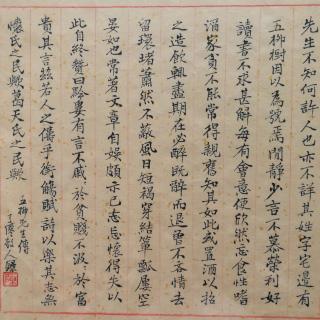 先生不知何許人也亦不詳其姓字宅邊有
五柳樹因以為號焉閒靜少言不慕榮利好
讀書不求甚解每有會意便欣然忘食性嗜
酒家貧不能常得親舊知其如此或置酒以招
之造飲輒盡期在必醉既醉而退曾不吝情去
留環堵蕭然不蔽風日短褐穿結簞瓢屢空
晏如也常著文章自娛頗示己志忘懷得失以
此自終贊曰黔婁有言不戚〻於貧賤不汲〻於富
貴其言茲若人之儔乎銜觴賦詩以樂其志無
懷氏之民歟葛天氏之民歟
五柳先生傳